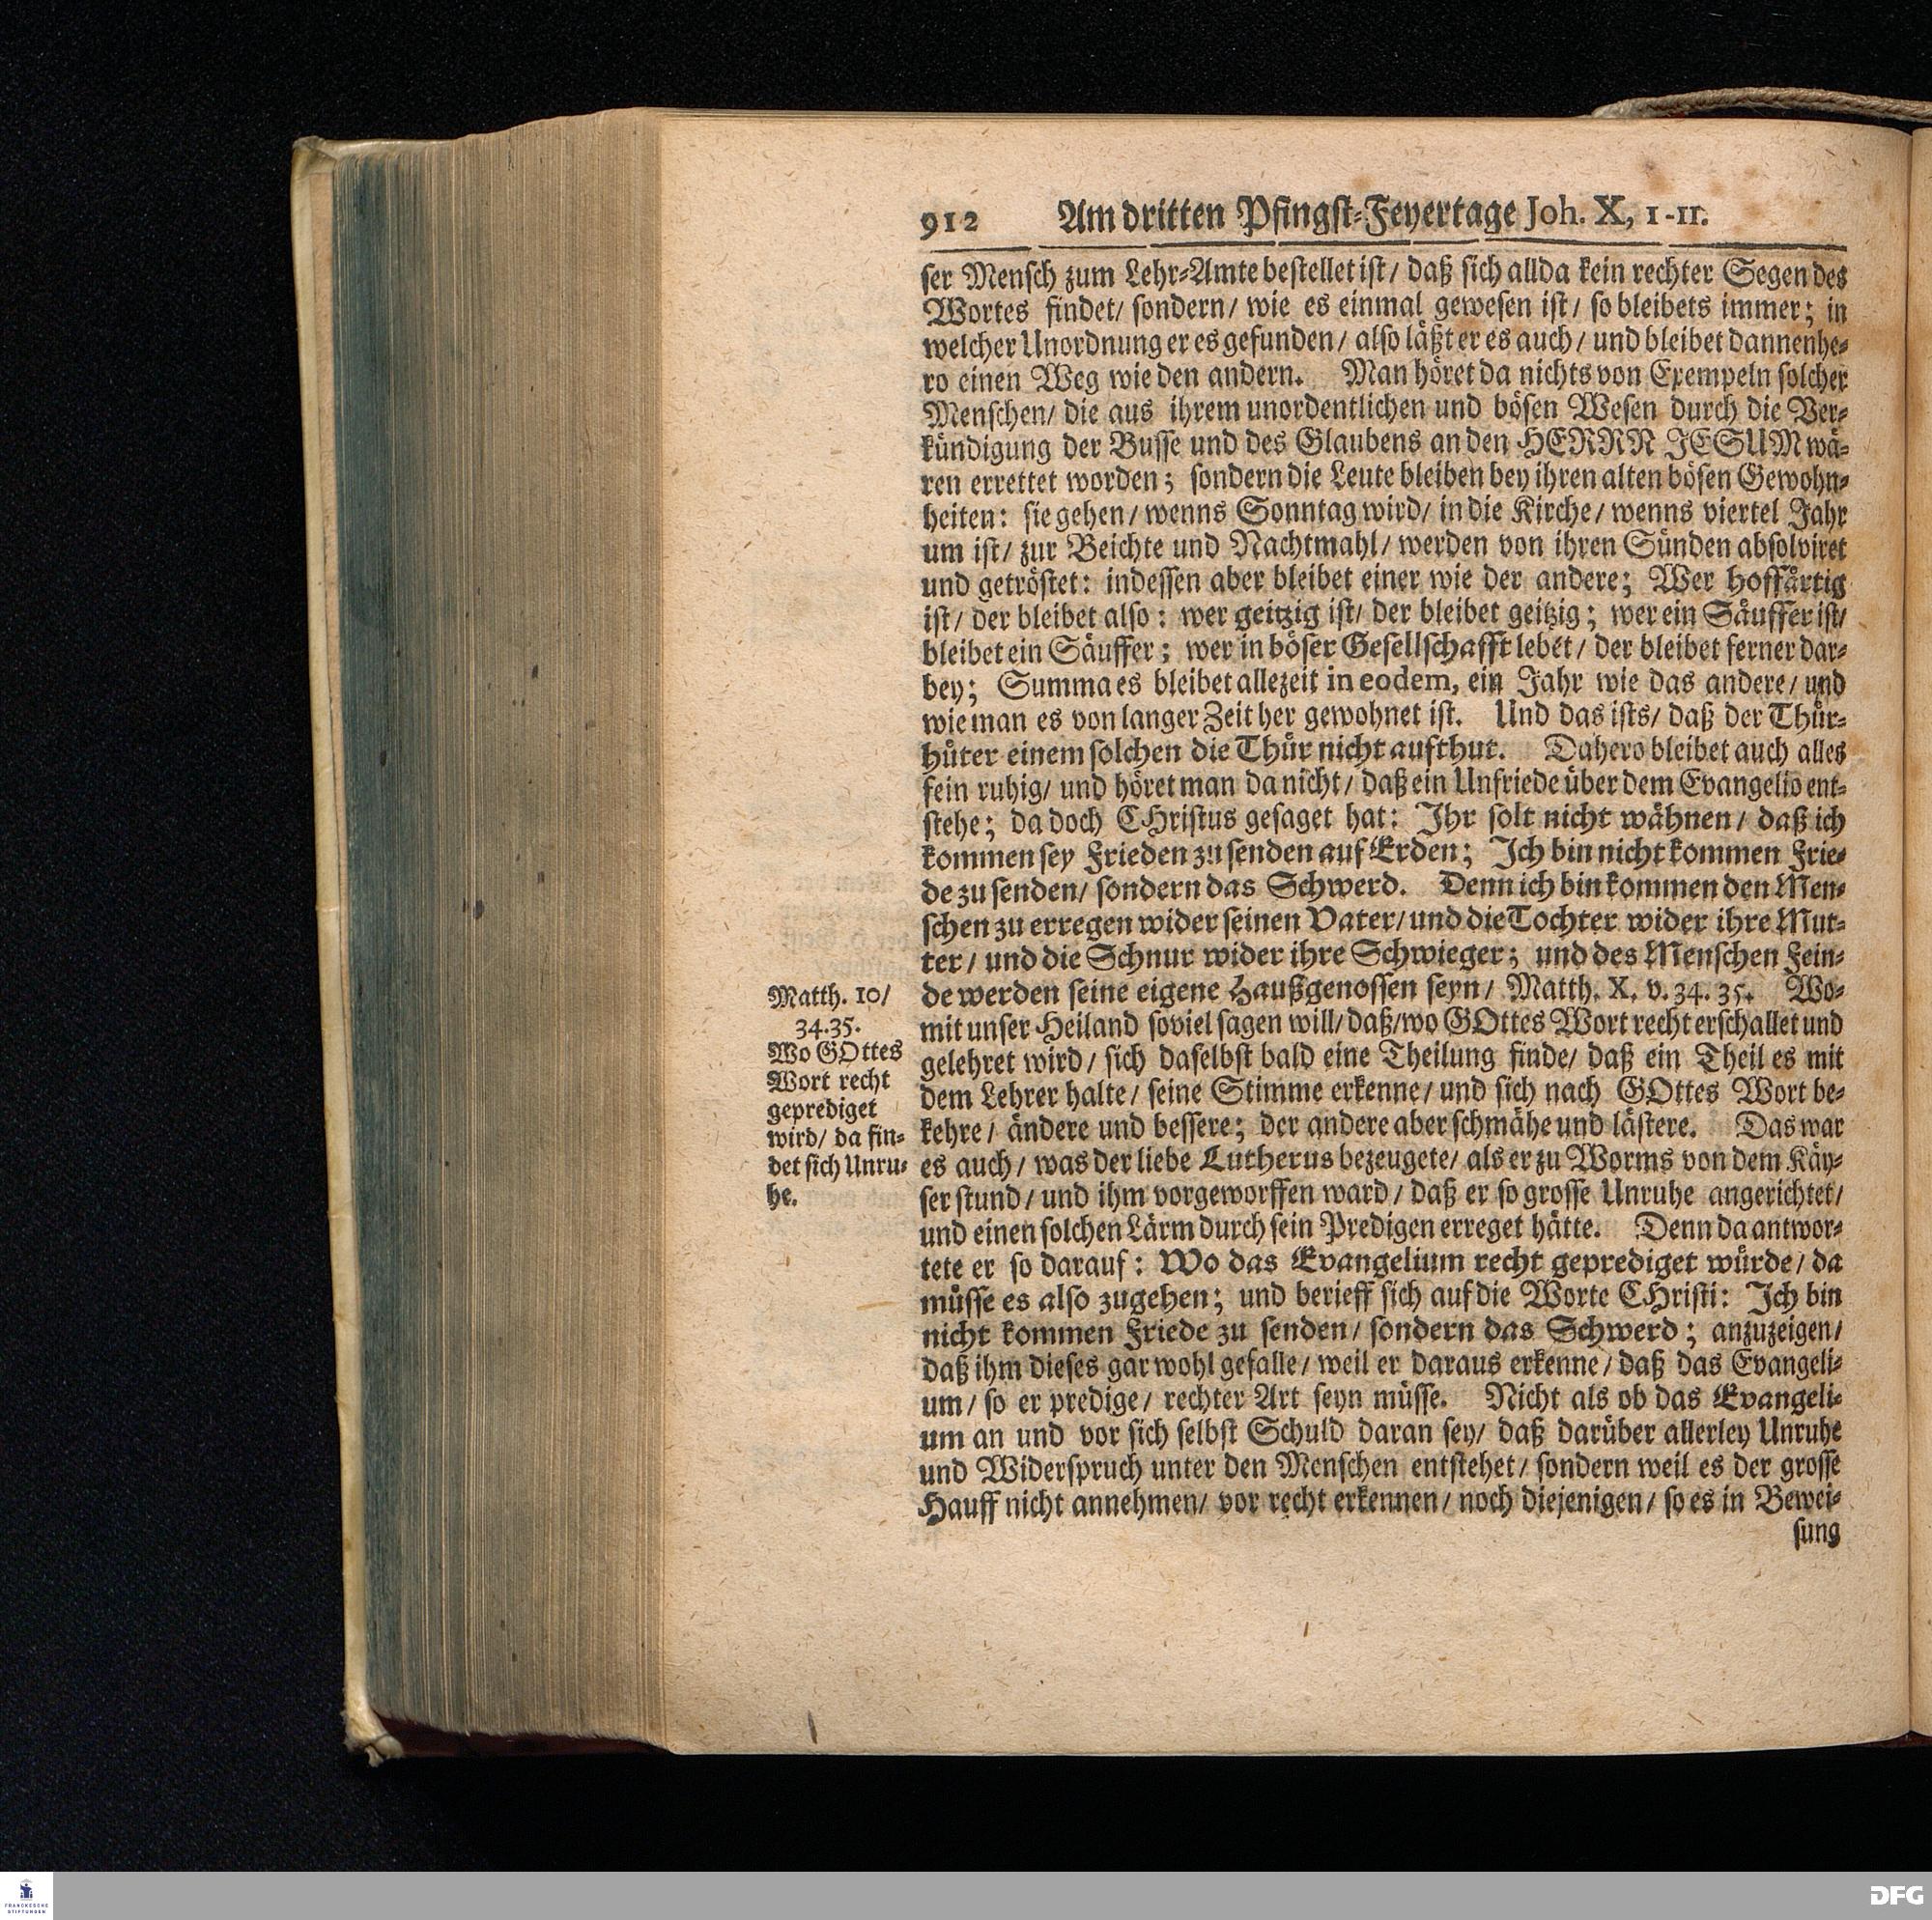 912 Am dritten Pfingst-Feyertage Joh. X, 1-11.
ser Mensch zum Lehr-Amte bestellet ist/ daß sich allda kein rechter Segen des
Wortes findet/ sondern/ wie es einmal gewesen ist/ so bleibets immer; in
welcher Unordnung er es gefunden/ also läßt er es auch/ und bleibet dannenhe-
ro einen Weg wie den andern. Man höret da nichts von Exempeln solcher
Menschen/ die aus ihrem unordentlichen und bösen Wesen durch die Ver-
kündigung der Busse und des Glaubens an den HERRN JESUM wä-
ren errettet worden; sondern die Leute bleiben bey ihren alten bösen Gewohn-
heiten: sie gehen/ wenns Sonntag wird/ in die Kirche/ wenns viertel Jahr
um ist/ zur Beichte und Nachtmahl/ werden von ihren Sünden absolviret
und getröstet: indessen aber bleibet einer wie der andere; Wer hoffärtig
ist/ der bleibet also: wer geitzig ist/ der bleibet geitzig; wer ein Säuffer ist/
bleibet ein Säuffer; wer in böser Gesellschafft lebet/ der bleibet ferner dar-
bey; Summa es bleibet allezeit in eodem, ein Jahr wie das andere/ und
wie man es von langer Zeit her gewohnet ist. Und das ists/ daß der Thür-
hüter einem solchen die Thür nicht aufthut. Dahero bleibet auch alles
fein ruhig/ und höret man da nicht/ daß ein Unfriede über dem Evangelio ent-
stehe; da doch CHristus gesaget hat: Ihr solt nicht wähnen/ daß ich
kommen sey Frieden zu senden auf Erden; Ich bin nicht kommen Frie-
de zu senden/ sondern das Schwerd. Denn ich bin kommen den Men-
schen zu erregen wider seinen Vater/ und die Tochter wider ihre Mut-
ter/ und die Schnur wider ihre Schwieger; und des Menschen Fein-
de werden seine eigene Haußgenossen seyn/ Matth. X. v. 34. 35. Wo-
mit unser Heiland soviel sagen will/ daß/ wo GOttes Wort recht erschallet und
gelehret wird/ sich daselbst bald eine Theilung finde/ daß ein Theil es mit
dem Lehrer halte/ seine Stimme erkenne/ und sich nach GOttes Wort be-
kehre/ ändere und bessere; der andere aber schmähe und lästere. Das war
es auch/ was der liebe Lutherus bezeugete/ als er zu Worms von dem Käy-
ser stund/ und ihm vorgeworffen ward/ daß er so grosse Unruhe angerichtet/
und einen solchen Lärm durch sein Predigen erreget hätte. Denn da antwor-
tete er so darauf: Wo das Evangelium recht geprediget würde/ da
müsse es also zugehen; und berieff sich auf die Worte CHristi: Ich bin
nicht kommen Friede zu senden/ sondern das Schwerd; anzuzeigen/
daß ihm dieses gar wohl gefalle/ weil er daraus erkenne/ daß das Evangeli-
um/ so er predige/ rechter Art seyn müsse. Nicht als ob das Evangeli-
um an und vor sich selbst Schuld daran sey/ daß darüber allerley Unruhe
und Widerspruch unter den Menschen entstehet/ sondern weil es der grosse
Hauff nicht annehmen/ vor recht erkennen/ noch diejenigen/ so es in Bewei-
sung
Matth. 10/
34. 35.
Wo GOttes
Wort recht
geprediget
wird/ da fin-
det sich Unru-
he.
FRANCKESCHE
STIFTUNGEN
DFG